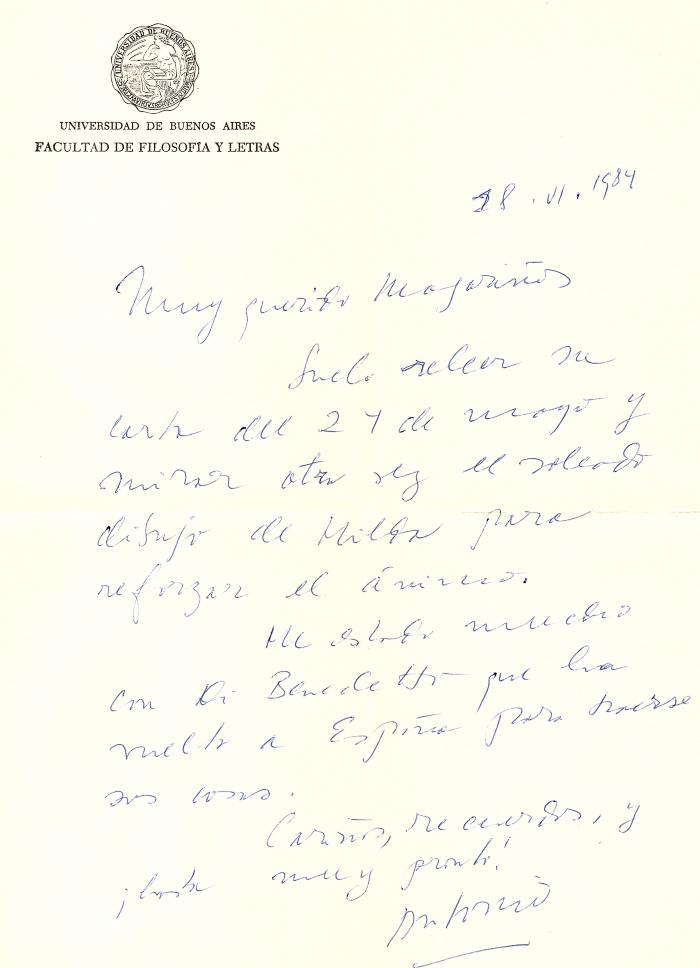 UNIVERSIDAD DE BUENOS AIRES
UNIVERSIDAD DE BUENOS AIRES
FACULTAD DE FILOSOFÍA Y LETRAS
18. VI. 1984
Muy querido Magariños
Suelo releer su
carta del 24 de mayo y
mirar otra vez el soleado
dibujo de Hilda para
reforzar el ánimo.
He estado mucho
con Di Benedetto que ha
vuelto a España para traerse
sus cosas.
Cariños, recuerdos, y
¡hasta muy pronto!
Antonio